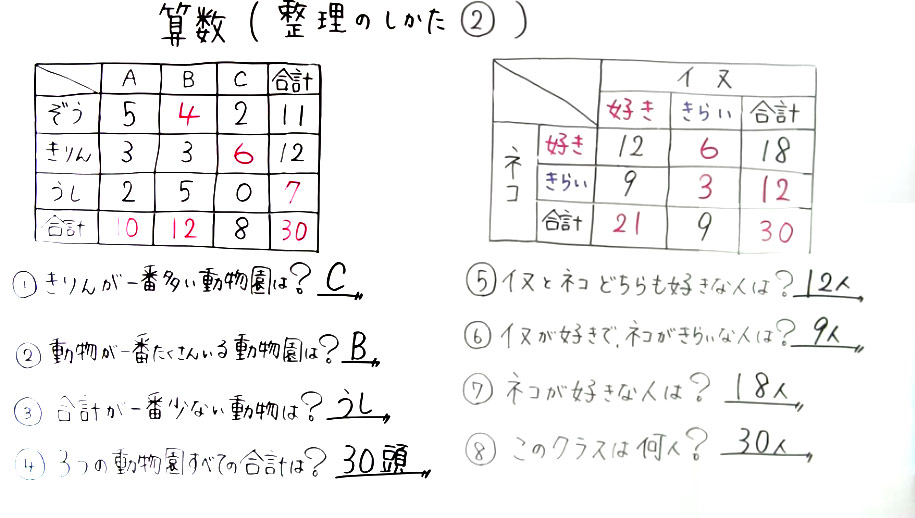 算数（整理のしかた②）
A B C 合計
ぞう 5 4 2 11
きりん 3 3 6 12
うし 2 5 0 7
合計 10 12 8 30
①きりんが一番多い動物園は? C
②動物が一番たくさんいる動物園は? B
③合計が一番少ない動物は? うし
④3つの動物園すべての合計は? 30頭
イヌ
好き きらい 合計
ネコ
好き 12 6 18
きらい 9 3 12
合計 21 9 30
⑤イヌとネコどちらも好きな人は? 12人
⑥イヌが好きで、ネコがきらいな人は? 9人
⑦ネコが好きな人は? 18人
⑧このクラスは何人? 30人